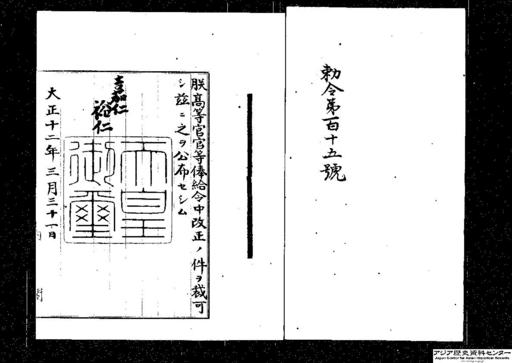 勅令第百十五號
朕高等官官等俸給令中改正ノ件ヲ裁可
シ茲ニ之ヲ公布セシム
嘉仁
裕仁
大正十二年三月三十一日
天皇
御璽
アジア歴史資料センター
Japan Center for Asian Historical Records